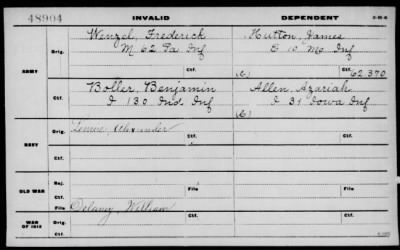 48904 INVALID DEPENDENT 3-25-6
Wenzel, Frederick Hutton, James
Orig. M 62 Pa Inf E 10 Mo Inf
ARMY (C.) Ctf. 62.370
Boller, Benjamin Allen, Azariah
Ctf. I 130 Ind Inf I 31 Iowa Inf
(C.)
Orig. Alexander
NAVY
Ctf.
Rej.
OLD WAR File File
Ctf.
Delaney, William
WAR OF 1812 Orig. Ctf.
Ctf.